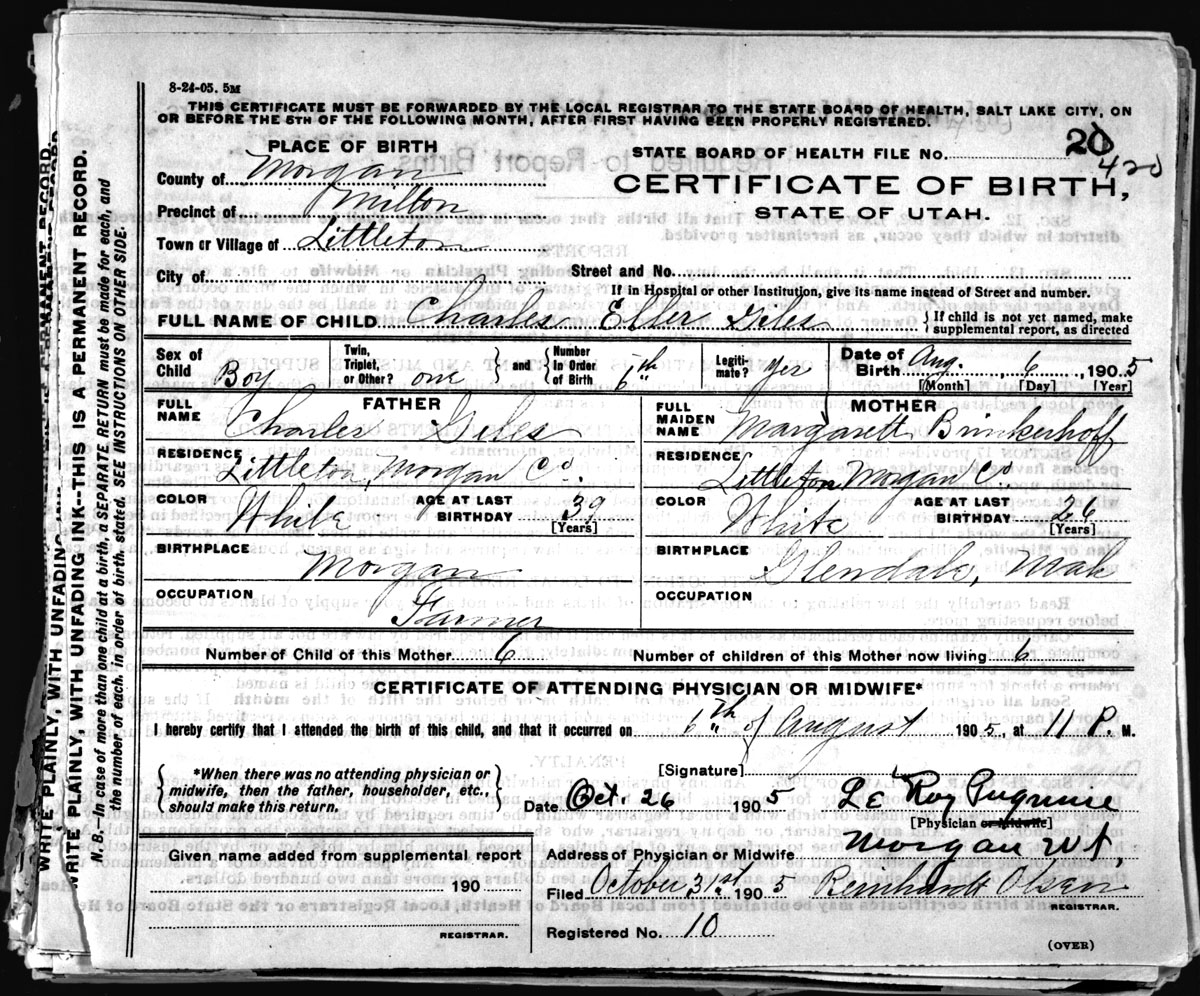 8-24-05. 5M
THIS CERTIFICATE MUST BE FORWARDED BY THE LOCAL REGISTRAR TO THE STATE BOARD OF HEALTH, SALT LAKE CITY, ON
OR BEFORE THE 5TH OF THE FOLLOWING MONTH, AFTER FIRST HAVING BEEN PROPERLY REGISTERED.
PLACE OF BIRTH
STATE BOARD OF HEALTH FILE No. 20
420
County of Morgan
CERTIFICATE OF BIRTH,
Precinct of Milton
STATE OF UTAH.
Town or Village of Littleton
City of
Street and No.
If in Hospital or other Institution, give its name instead of Street and number.
FULL NAME OF CHILD Charles Eller Giles
If child is not yet named, make
supplemental report, as directed
Sex of Child Boy
Twin, Triplet, or Other? one
and
Number In Order of Birth 6th
Legitimate? yes
Date of Birth Aug. 6 1905
[Month] [Day] [Year]
FATHER
FULL NAME Charles Giles
RESIDENCE Littleton, Morgan Co.
COLOR White
AGE AT LAST BIRTHDAY 39
[Years]
BIRTHPLACE Morgan
OCCUPATION Farmer
MOTHER
FULL MAIDEN NAME Margarett Brinkerhoff
RESIDENCE Littleton, Morgan Co.
COLOR White
AGE AT LAST BIRTHDAY 26
[Years]
BIRTHPLACE Glendale, Utah
OCCUPATION
Number of Child of this Mother 6
Number of children of this Mother now living 6
CERTIFICATE OF ATTENDING PHYSICIAN OR MIDWIFE*
I hereby certify that I attended the birth of this child, and that it occurred on 6th of August 1905, at 11 P. M.
*When there was no attending physician or
midwife, then the father, householder, etc.,
should make this return.
[Signature]
Date Oct. 26 1905 Le Roy
[Physician or Midwife]
Address of Physician or Midwife Morgan Ut.
Given name added from supplemental report
190
REGISTRAR.
Filed October 31st 1905 Reinhardt Olsen
REGISTRAR.
Registered No. 10
(OVER)
WRITE PLAINLY, WITH UNFADING INK--THIS IS A PERMANENT RECORD.
N. B.--In case of more than one child at a birth, a SEPARATE RETURN must be made for each, and
the number of each, in order of birth, stated. SEE INSTRUCTIONS ON OTHER SIDE.